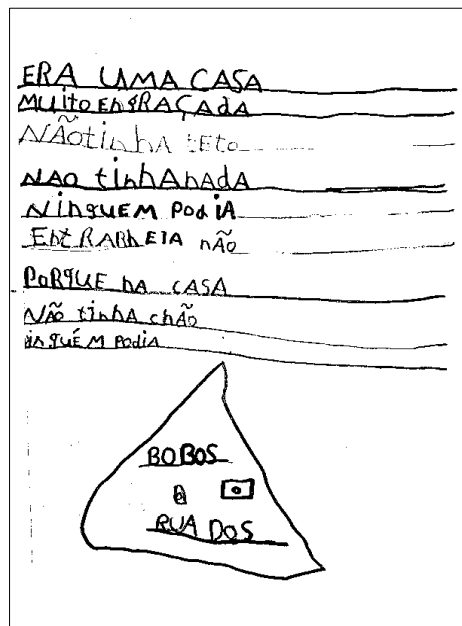 ERA UMA CASA
MUITO ENGRAÇADA
NÃOTINHA TETO
NAO tinhANADA
NINGUEM PODIA
ENTRARNEIA NÃO
PORQUE NA CASA
NÃO tinhA chÃO
iNGUÉM PODIA
BOBOS
0
RUA DOS